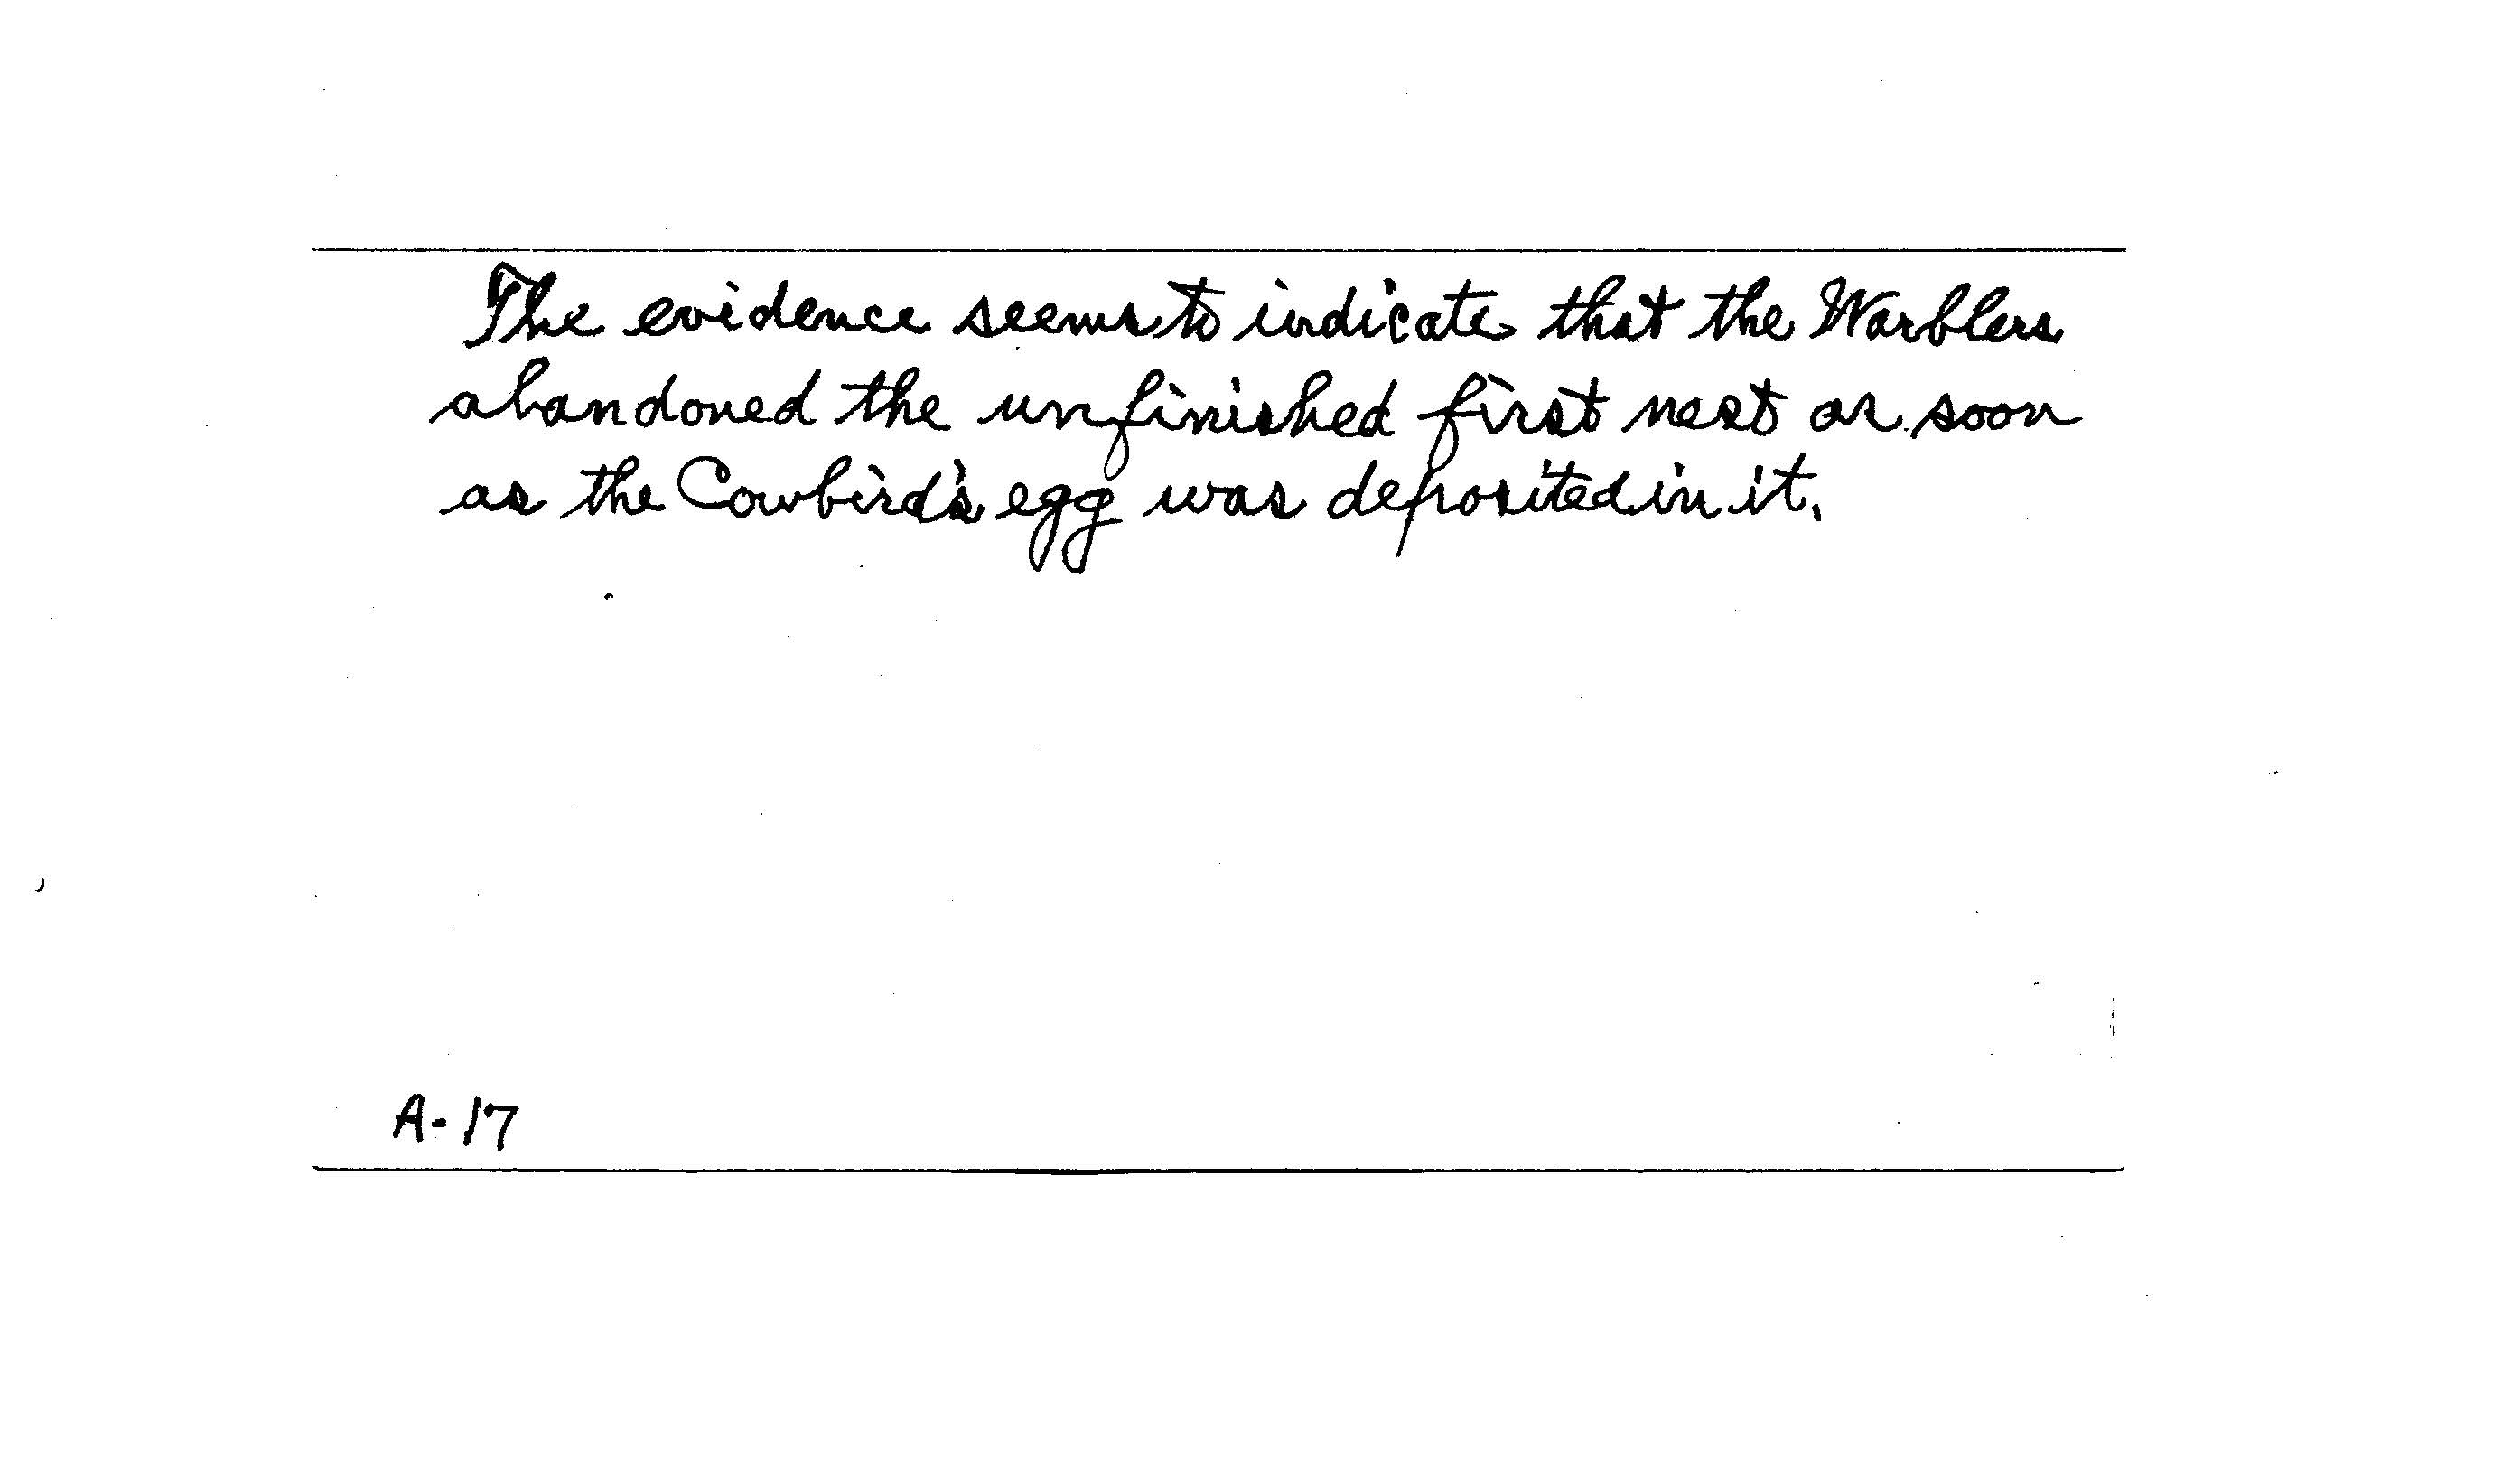 The evidence seems to indicate that the Warblers
abandoned the unfinished first nest as soon
as the Cowbird's egg was deposited in it.
A-17